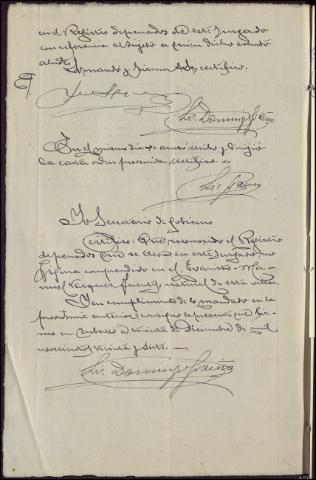 en el Registro de penados de este Juzgado
con referencia al sujeto a quien dicho
alude.
Lo mandó y firma S.S., certifico.
Lic. Domingo
En el mismo día se y dirigió
la carta orden prevenida, certifico.
Lic.
Yo Secretario de Gobierno
Certifico: Que reconocido el Registro
de penados que se lleva en este Juzgado no
figura comprendido en el Evaristo-Ma-
nuel Vázquez natural de esta villa.
Y en cumplimiento de lo mandado en la
providencia anterior, la presente que fir-
mo en a treinta de diciembre de mil
novecientos treinta y siete.
Lic. Domingo